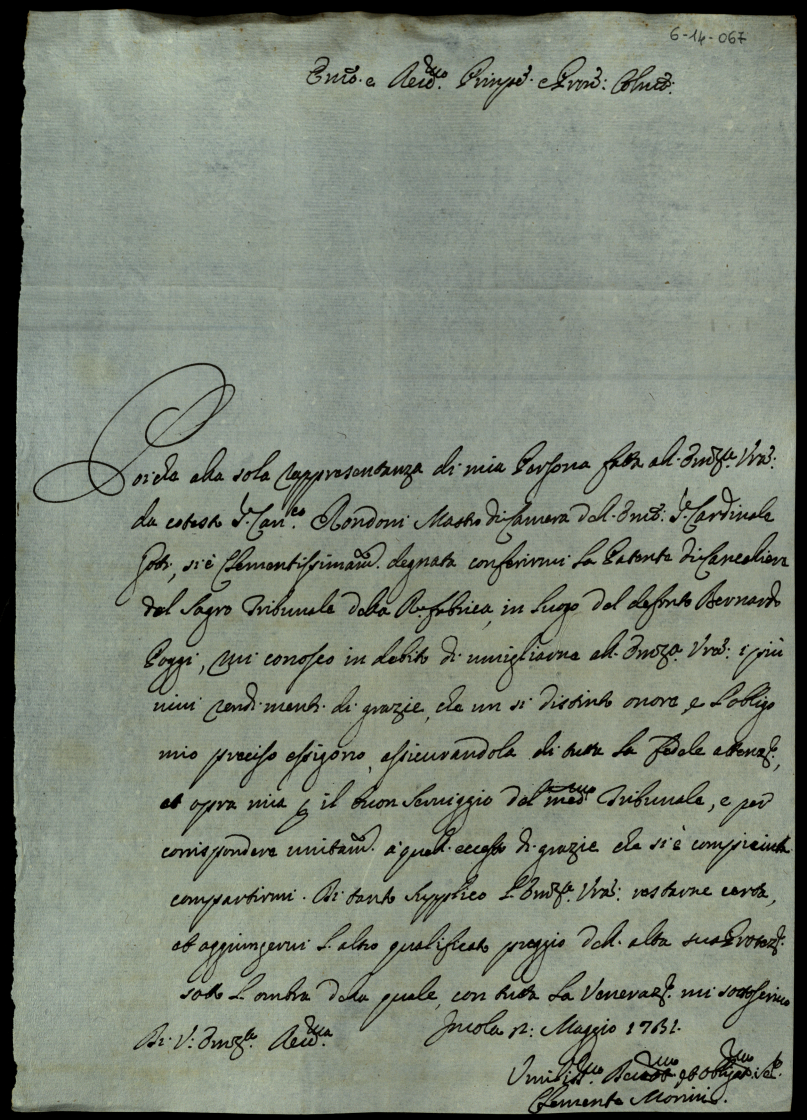 6-14-067
Em̃o. e Reṽmo. Prinpẽ. e Pron̄: Colmõ:
Poiche alla sola rappresentanza di mia Persona fatta all. Emz̃a. Vrã:
da cotesto Sr. Can.co Rondoni Mastro di Camera dell. Emõ: Sr. Cardinale
Gotti, si è Clementissimam̃. degnata conferirmi la Patente di Cancelliere
del Sagro Tribunale della R. fabbrica, in luogo del defonto Bernardo
Poggi, mi conosco in debito di umigliarne all. Emz̃a. Vrã: i più
vivi rendimenti di grazie, che un si distinto onore, e l'obligo
mio preciso essigono, assicurandola di tutta la fedele attenz̃:,
et opra mia p il buon serviggio del med.mo Tribunale, e per
corrispondere unitam̃. a quell. eccesso di grazie che si è compiaciuta
compartirmi. Di tanto supplico l. Emz̃a. Vrã: restarne certa,
et aggiungervi l. altro qualificato preggio dell. alta sua Protez̃:
sotto l. ombra della quale, con tutta la Veneraz̃. mi sottoscrivo
Di V: Emz̃a. Rev̄ma. Imola 12: Maggio 1731.
Umiliss.mo Devot.mo et Obligat.mo
Clemente Morini.